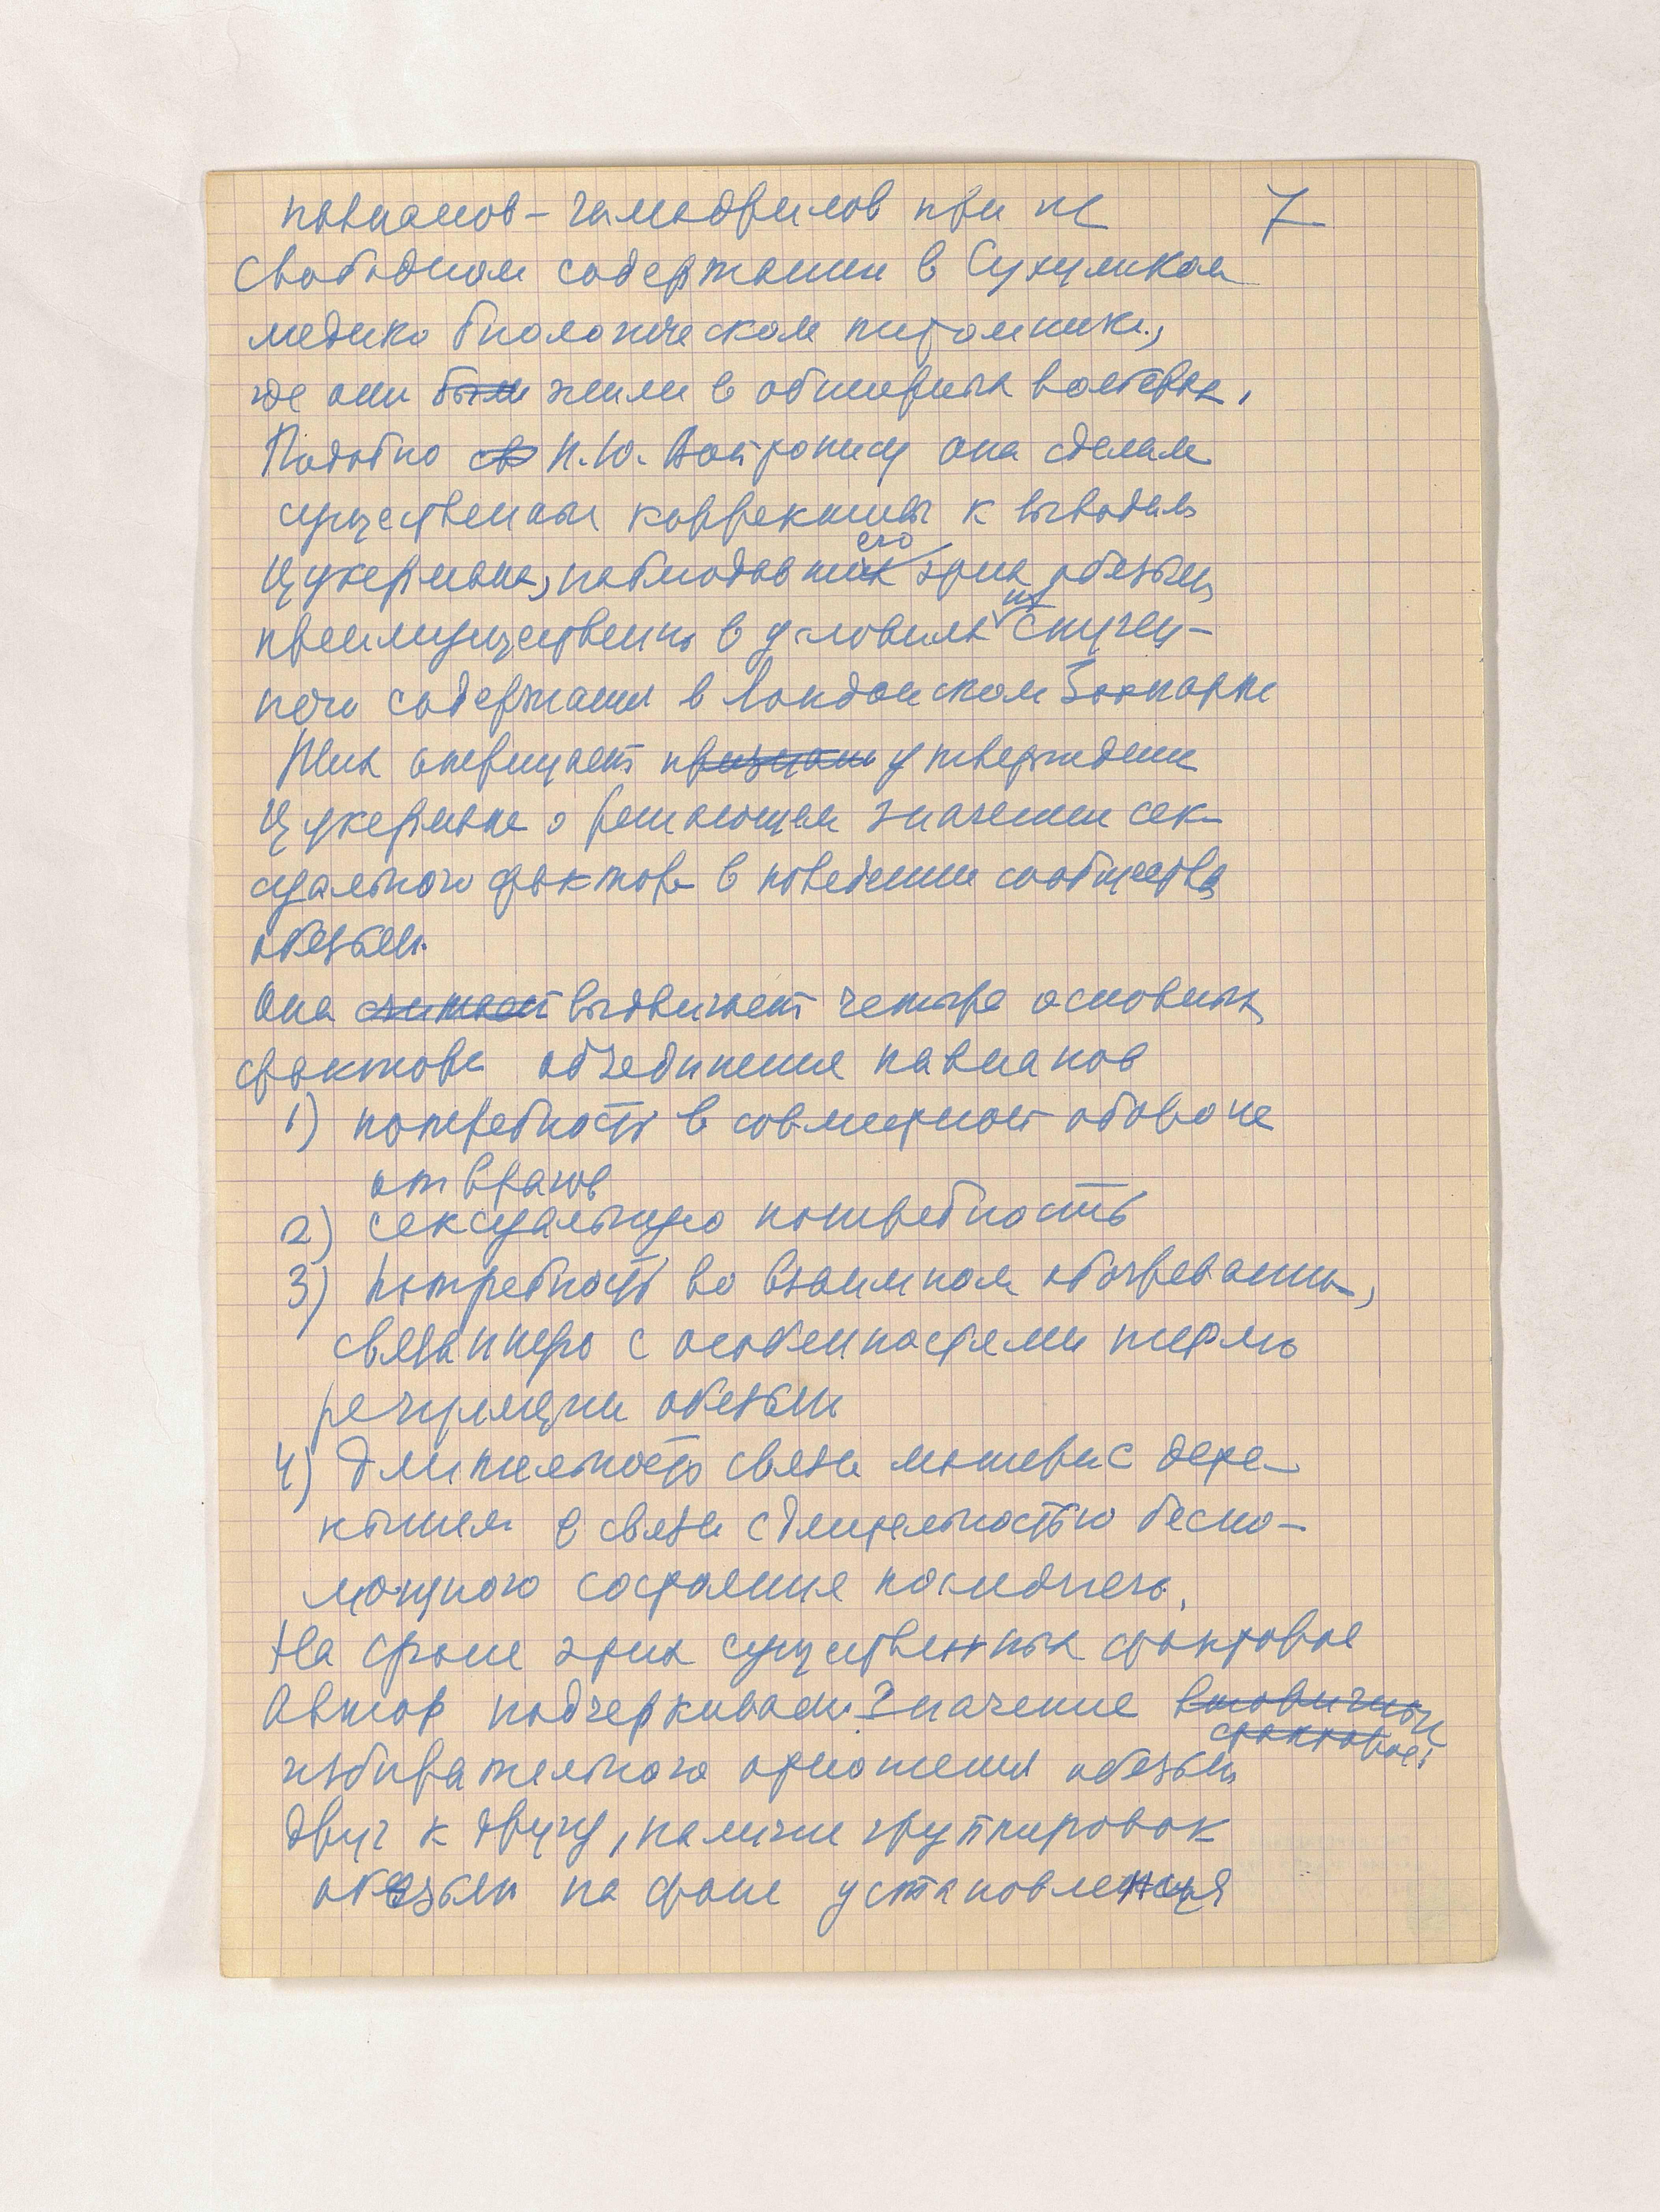 павианов-гамадрилов при их 7
свободном содержании в Сухумском
медико биологическом питомнике,
где они были жили в обширных вольерах.
Подобно св Н.Ю. Войтонису она сделала
существенные коррективы к выводам
Цукермана, наблюдавших его этих обезьян
преимущественно в условиях их скучен-
ного содержания в Лондонском Зоопарке
Тих отвергает признани утверждение
Цукермана о решающем значении сек-
суального фактора в поведении сообщества
обезьян.
Она считает выдвигает четыре основных
фактора объединения павианов
1) потребность в совместной обороне
от врагов
2) сексуальную потребность
3) потребность во взаимном обогревании,
связанную с особенностями термо
регуляции обезьян
4) длительность связи матери с дете-
нышем в связи с длительностью беспо-
мощного состояния последнего.
На фоне этих существенных факторов
Автор подчеркивает значение вторичных
факторов:
избирательного отношения обезьян
друг к другу, наличие группировок
обезьян на фоне установления